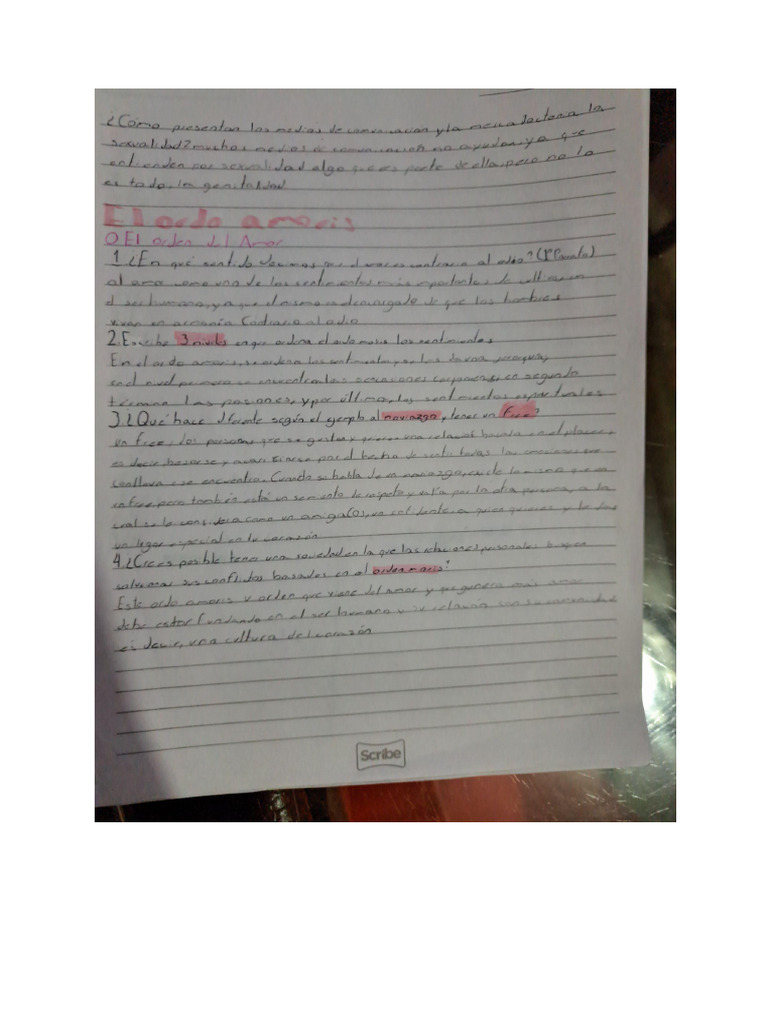 ¿Cómo presentan los medios de comunicación y la mercadoctenia la
sexualidad? muchos medios de comunicación no ayudan, ya que
entienden por sexualidad algo que es parte de ella, pero no lo
es todo, la genitalidad.
El ordo amoris
O El orden del Amor
1 ¿En qué sentido decimos que el amor es contrario al odio? (1°
al amor como uno de los sentimientos más importantes de cultivar en
el ser humano, ya que el mismo es encargado de que los hombres
vivan en armonía Contrario al odio
2. Escribe 3 niveles en que ordena el ordo amoris los sentimientos
En el ordo amoris, se ordena los sentimientos y se les da una jerarquía,
en el nivel primero se encuentran las sensaciones corporales, en segundo
término las pasiones, y por último, los sentimientos espirituales
3. ¿Qué hace diferente según el ejemplo al noviazgo, tener un Free?
un free, dos personas que se gustan y quieren una relación basada en el placer,
es decir, besarse y acariciarse por el hecho de sentir todas las emociones que
conlleva ese encuentro. Cuando se habla de un noviazgo, existe lo mismo que en
un free pero también está un sentimiento de respeto y valía por la otra persona, a la
cual se le considera como un amiga(o), un confidente, a quien quieres y le das
un lugar especial en tu corazón
4. ¿Crees posible tener una sociedad en la que las relaciones personales busquen
solucionar sus conflictos basados en el orden moris?
Este ordo amoris u orden que viene del amor y que genera más amor
debe estar fundando en el ser humano y su relación con
es decir, una cultura del corazón
Scribe